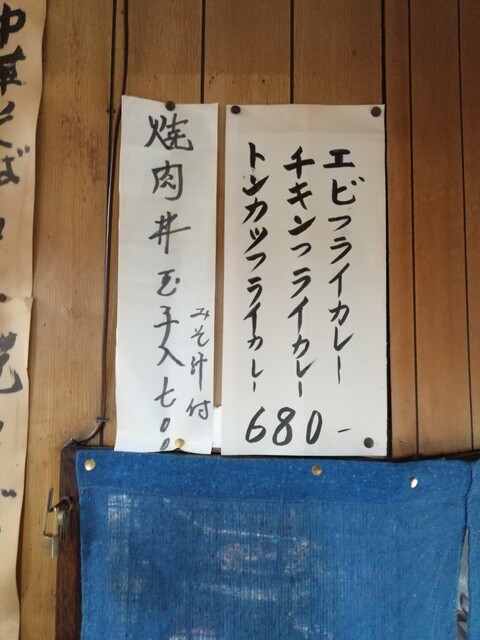 エビフライカレー
チキンフライカレー
トンカツフライカレー
680-
焼肉丼玉子入七〇〇
みそ汁付
中華そば